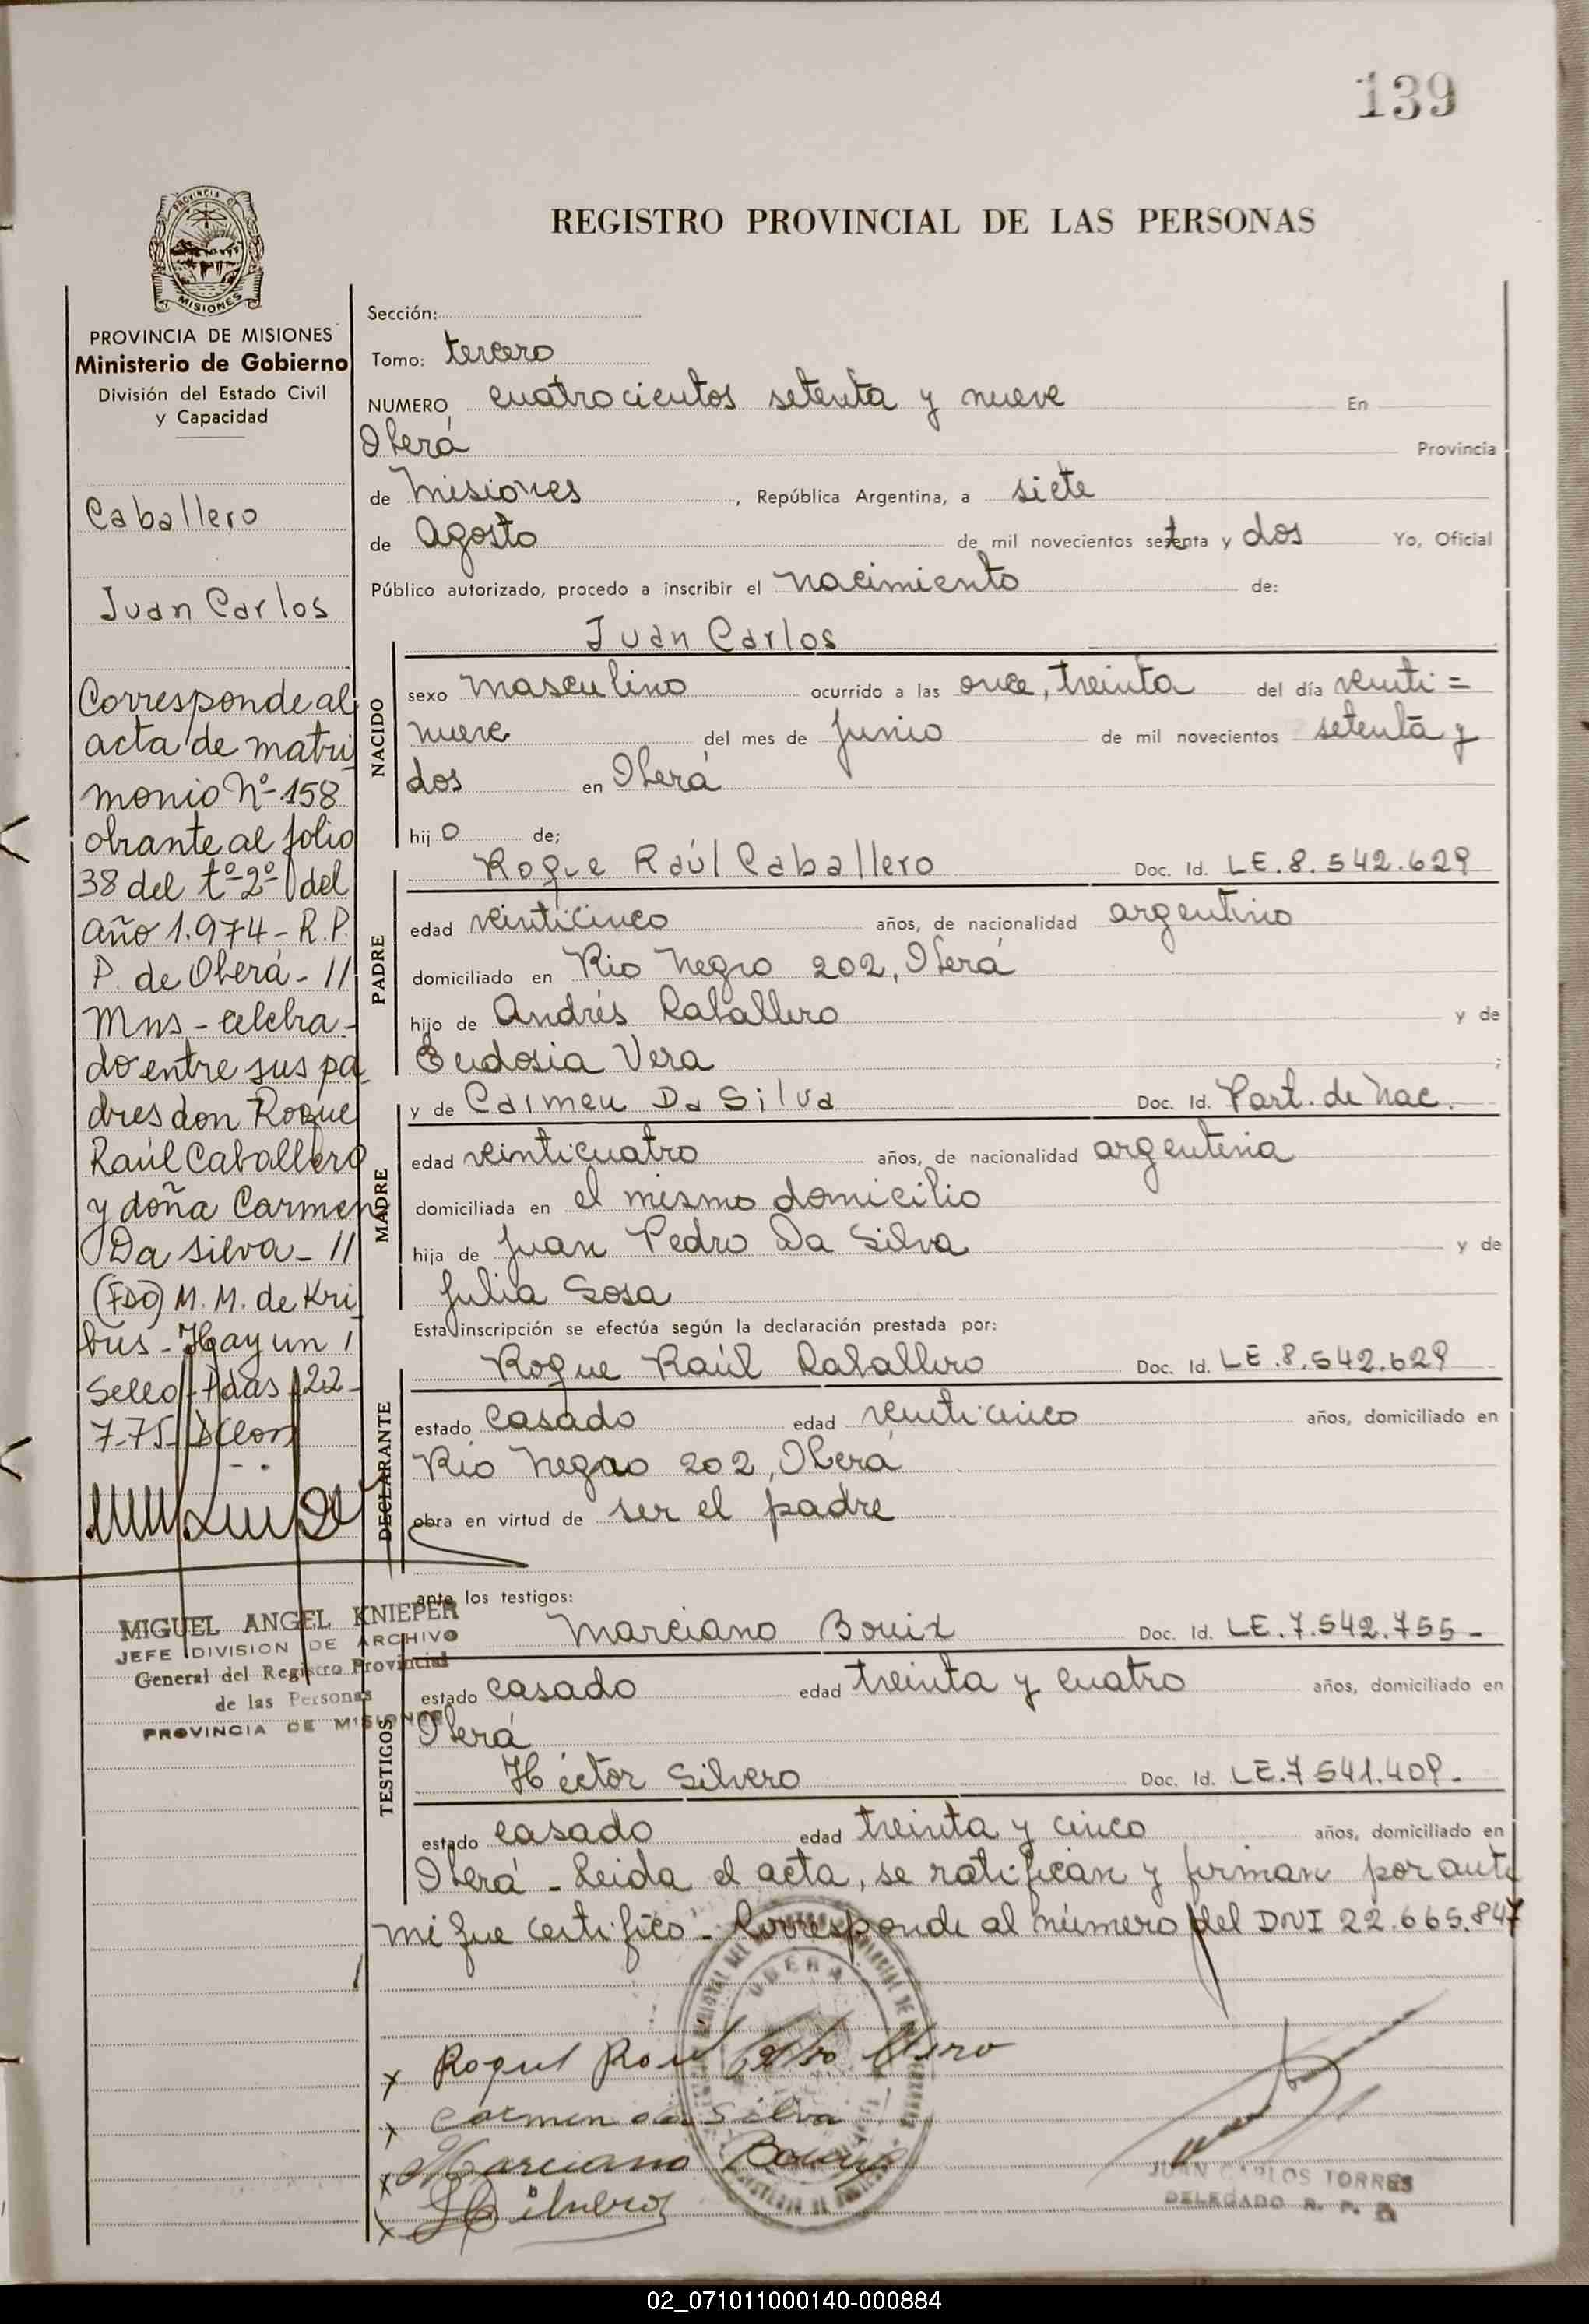 139
PROVINCIA DE
MISIONES
REGISTRO PROVINCIAL DE LAS PERSONAS
PROVINCIA DE MISIONES
Ministerio de Gobierno
División del Estado Civil
y Capacidad
Caballero
Juan Carlos
Corresponde al
acta de matri
monio Nº 158
obrante al folio
38 del tº 2º del
año 1.974 - R.P.
P. de Oberá - //
Mns - celebra-
do entre sus pa
dres don Roque
Raúl Caballero
y doña Carmen
Da silva - //
(FDO) M. M. de Kri
bus - Hay un /
Sello - Pdas 22-
7-75
MIGUEL ANGEL KNIEPER
JEFE DIVISION DE ARCHIVO
General del Registro Provincial
de las Personas
PROVINCIA DE MISIONES
Sección:
Tomo: tercero
NUMERO cuatrocientos setenta y nueve En
Oberá Provincia
de Misiones, República Argentina, a siete
de Agosto de mil novecientos setenta y dos Yo, Oficial
Público autorizado, procedo a inscribir el nacimiento de:
Juan Carlos
NACIDO
sexo masculino ocurrido a las once, treinta del día veinti=
nueve del mes de Junio de mil novecientos setenta y
dos en Oberá
hijo de;
Roque Raúl Caballero Doc. Id. LE.8.542.629
PADRE
edad veinticinco años, de nacionalidad argentino
domiciliado en Rio Negro 202, Oberá
hijo de Andrés Caballero y de
Eudosia Vera ;
y de Carmen Da Silva Doc. Id. Part. de Nac.
MADRE
edad veinticuatro años, de nacionalidad argentina
domiciliada en el mismo domicilio
hija de Juan Pedro Da Silva y de
Julia Sosa
Esta inscripción se efectúa según la declaración prestada por:
Roque Raúl Caballero Doc. Id. LE.8.542.629
DECLARANTE
estado casado edad veinticinco años, domiciliado en
Rio Negro 202, Oberá
obra en virtud de ser el padre
ante los testigos:
Marciano Bouix Doc. Id. LE.7.542.755-
TESTIGOS
estado casado edad treinta y cuatro años, domiciliado en
Oberá
Héctor Silvero Doc. Id. LE.7 541.409-
estado casado edad treinta y cinco años, domiciliado en
Oberá - Leida el acta, se ratifican y firman por ante
mi que certifico - Corresponde al número del DNI 22.665.847
OBERA
x Roque Raul Caballero
x Carmen da Silva
x Marciano
x Silvero
JUAN CARLOS TORRES
DELEGADO R. P. P.
02_071011000140-000884